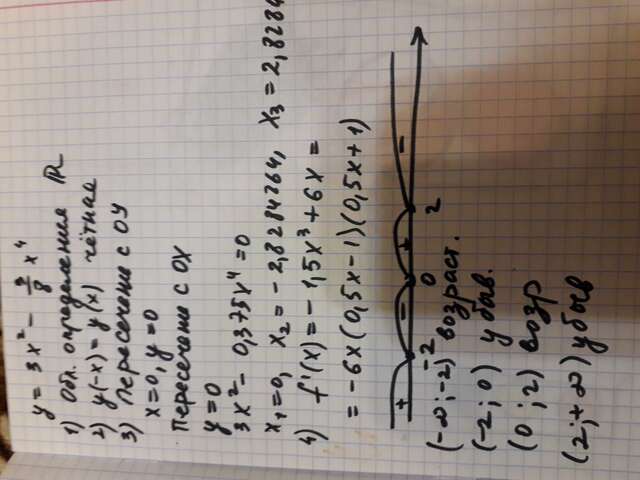 y = 3x² - 3/8 x⁴
1) Обл. определения ℝ
2) y(-x) = y(x) чётная
3) Пересечение с ОУ
x = 0, y = 0
Пересечение с ОХ
y = 0
3x² - 0,375x⁴ = 0
x₁ = 0, x₂ = -2,8284264, x₃ = 2,8284
4) f'(x) = -1,5x³ + 6x =
= -6x(0,5x-1)(0,5x+1)
+ - + -
-2 0 2
(-∞; -2) возраст.
(-2; 0) убыв.
(0; 2) возр
(2; +∞) убыв